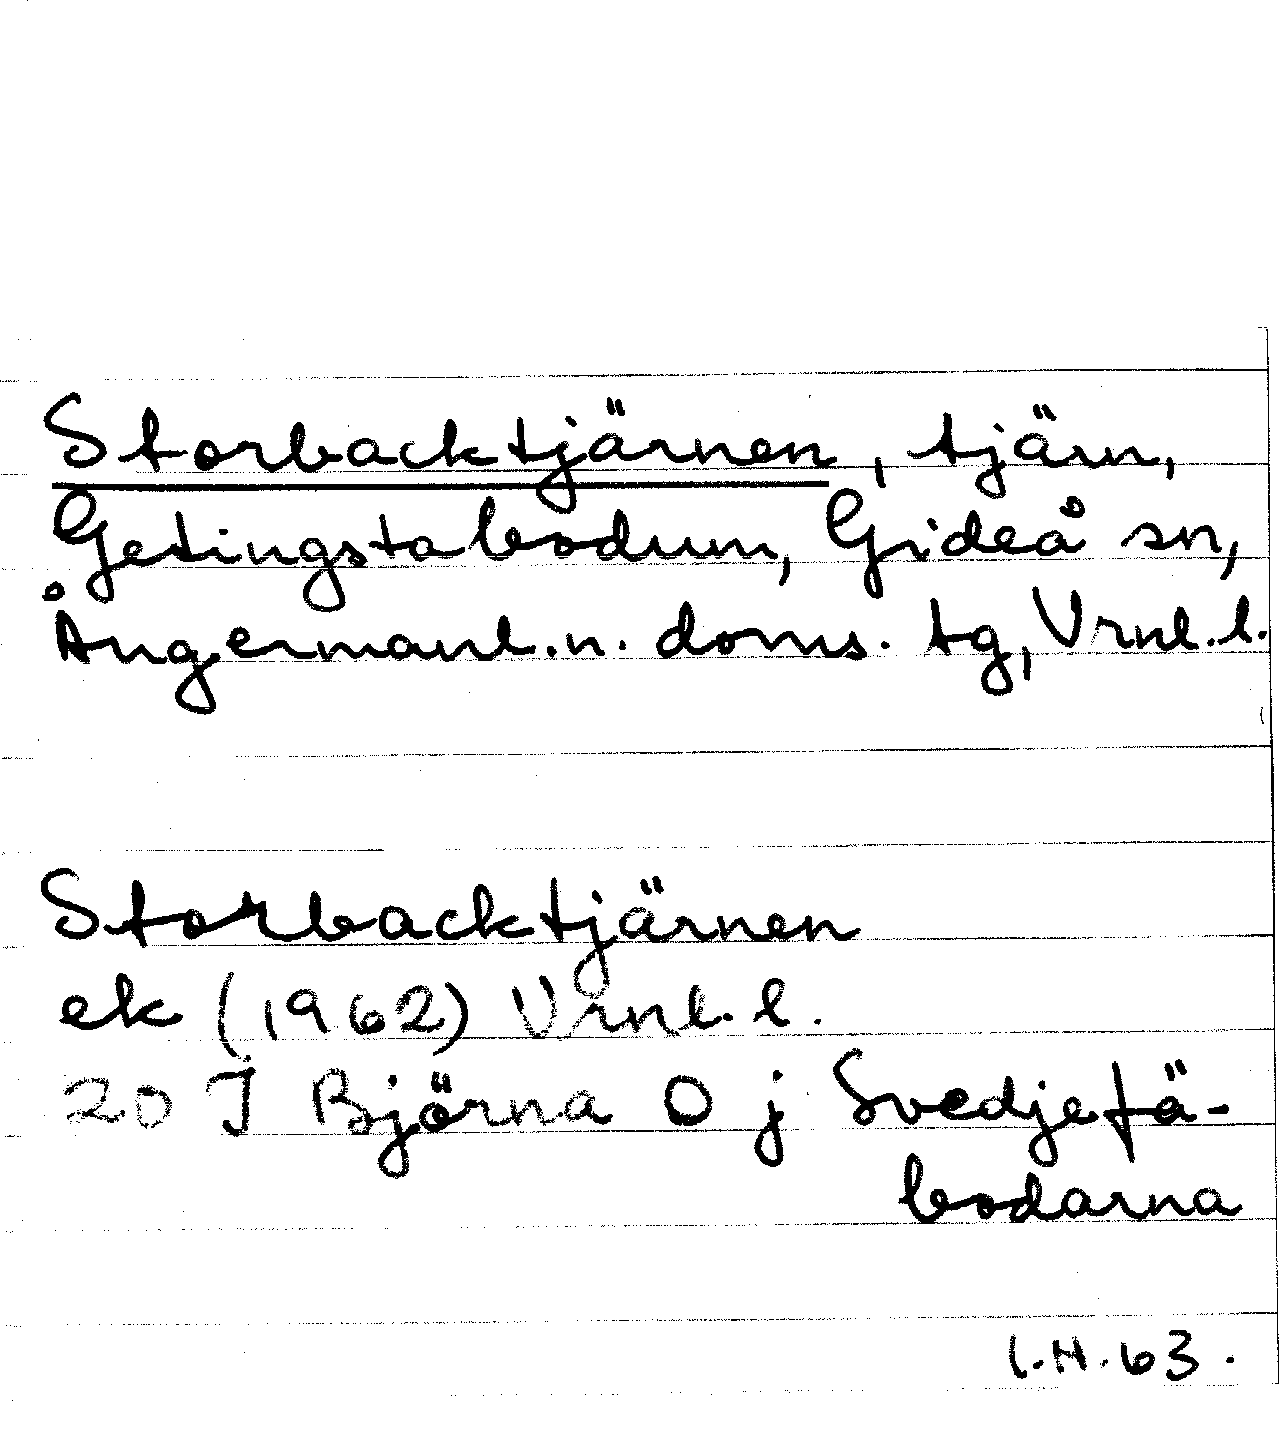 Storbacktjärnen, tjärn,
Getingstabodum, Gideå sn,
Ångermanl. n. doms. tg, Vrnl. l.
Storbacktjärnen
ek (1962) Vrnl. l.
20 I Björna O j Svedjefä-
bodarna
l.H.63.